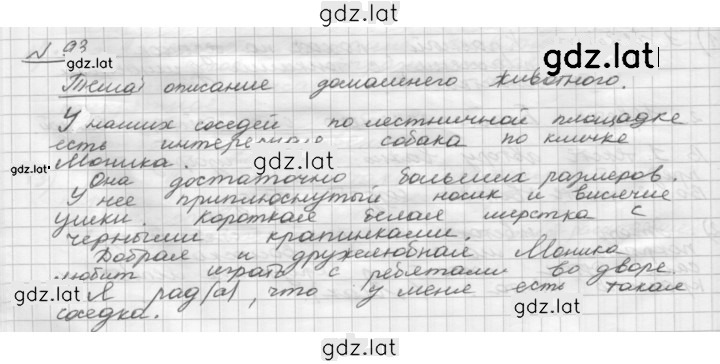 gdz.lat
N 93
gdz.lat
gdz.lat
Тема: описание домашнего животного.
У наших соседей по лестничной площадке
есть собака по кличке
gdz.lat
gdz.lat
Моника.
Она достаточно больших размеров.
У неё приплюснутый носик и висячие
ушки. Короткая белая шерстка с
черными крапинками.
Добрая и дружелюбная Моника
любит играть с ребятами во дворе.
gdz.lat
gdz.lat
Я рад(а), что у меня есть такая
соседка.
gdz.lat